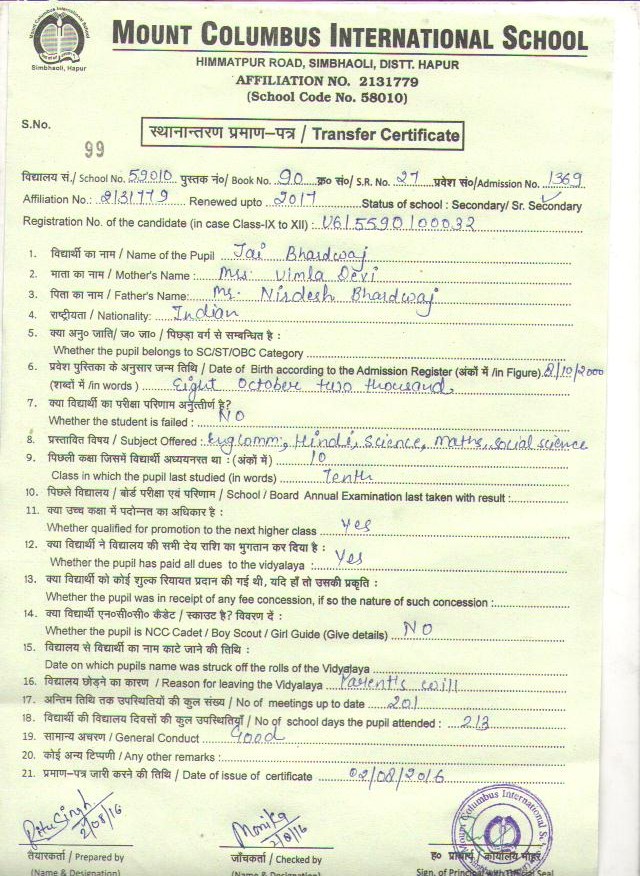 Mount Columbus International School
Simbhaoli, Hapur
MOUNT COLUMBUS INTERNATIONAL SCHOOL
HIMMATPUR ROAD, SIMBHAOLI, DISTT. HAPUR
AFFILIATION NO. 2131779
(School Code No. 58010)
S.No.
99
स्थानान्तरण प्रमाण-पत्र / Transfer Certificate
विद्यालय सं./ School No. 59010 पुस्तक नं०/ Book No. 90 क्र० सं०/ S.R. No. 27 प्रवेश सं०/Admission No. 1369
Affiliation No.: 2131779 Renewed upto 2017 Status of school : Secondary/ Sr. Secondary
Registration No. of the candidate (in case Class-IX to XII) : U6/5590100032
1. विद्यार्थी का नाम / Name of the Pupil Jai Bhardwaj
2. माता का नाम / Mother's Name : Mrs. Vimla Devi
3. पिता का नाम / Father's Name: Mr. Nirdesh Bhardwaj
4. राष्ट्रीयता / Nationality: Indian
5. क्या अनु० जाति/ ज० जा० / पिछड़ा वर्ग से सम्बन्धित है :
Whether the pupil belongs to SC/ST/OBC Category
6. प्रवेश पुस्तिका के अनुसार जन्म तिथि / Date of Birth according to the Admission Register (अंकों में /in Figure). 8/10/2000
(शब्दों में /in words ) Eight Octobere two thousand
7. क्या विद्यार्थी का परीक्षा परिणाम अनुत्तीर्ण है?
Whether the student is failed : NO
8. प्रस्तावित विषय / Subject Offered : Eng Comm, Hindi, Science, Maths, Social science
9. पिछली कक्षा जिसमें विद्यार्थी अध्ययनरत था : (अंकों में ) 10
Class in which the pupil last studied (in words) Tenth
10. पिछले विद्यालय / बोर्ड परीक्षा एवं परिणाम / School / Board Annual Examination last taken with result :
11. क्या उच्च कक्षा में पदोन्नत का अधिकार है :
Whether qualified for promotion to the next higher class yes
12. क्या विद्यार्थी ने विद्यालय की सभी देय राशि का भुगतान कर दिया है :
Whether the pupil has paid all dues to the vidyalaya : Yes
13. क्या विद्यार्थी को कोई शुल्क रियायत प्रदान की गई थी, यदि हाँ तो उसकी प्रकृति :
Whether the pupil was in receipt of any fee concession, if so the nature of such concession :
14. क्या विद्यार्थी एन०सी०सी० कैडेट / स्काउट है? विवरण दें :
Whether the pupil is NCC Cadet / Boy Scout / Girl Guide (Give details) NO
15. विद्यालय से विद्यार्थी का नाम काटे जाने की तिथि :
Date on which pupils name was struck off the rolls of the Vidyalaya
16. विद्यालय छोड़ने का कारण / Reason for leaving the Vidyalaya Parent's will
17. अन्तिम तिथि तक उपस्थितियों की कुल संख्य / No of meetings up to date 201
18. विद्यार्थी की विद्यालय दिवसों की कुल उपस्थितियाँ / No of school days the pupil attended : 213
19. सामान्य अचरण / General Conduct Good
20. कोई अन्य टिप्पणी / Any other remarks :
21. प्रमाण-पत्र जारी करने की तिथि / Date of issue of certificate 02/08/2016
Ritu Singh 2/08/16
Monika 2/8/16
Mount Columbus International
तैयारकर्ता / Prepared by
जाँचकर्ता / Checked by
ह० प्राचार्य / कार्यालय मोहर
(Name & Designation)
(Name & Designation)
Sign. of Principal with Official Seal